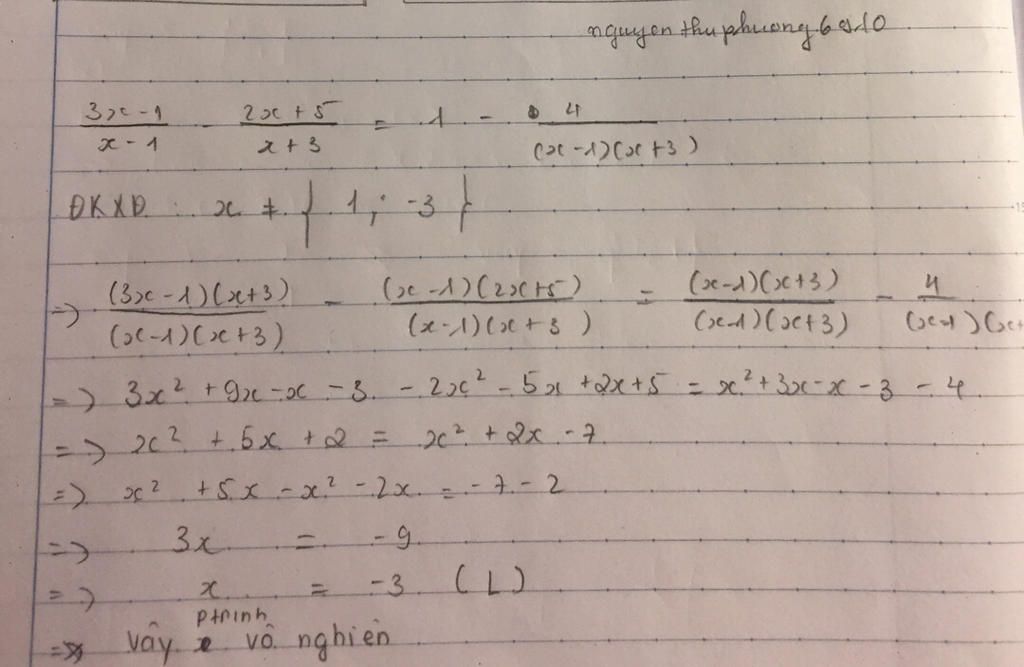 nguyen thuphuong 6 a10
\frac{3x-1}{x-1} - \frac{2x+5}{x+3} = 1 - \frac{4}{(x-1)(x+3)}
ĐKXĐ : x ≠ { 1 ; -3 }
=> \frac{(3x-1)(x+3)}{(x-1)(x+3)} - \frac{(x-1)(2x+5)}{(x-1)(x+3)} = \frac{(x-1)(x+3)}{(x-1)(x+3)} - \frac{4}{(x-1)(x+
=> 3x² + 9x - x - 3 - 2x² - 5x + 2x + 5 = x² + 3x - x - 3 - 4
=> x² + 5x + 2 = x² + 2x - 7
=> x² + 5x - x² - 2x = -7 - 2
=> 3x = -9
=> x = -3 (L)
=> Vây ptrinh vô nghiên